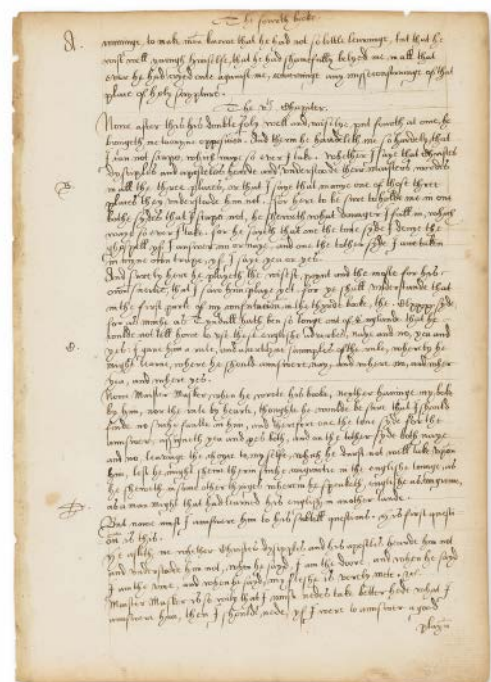 The fowrth boke
A. cunninge, to make men knowe that he had not so little lerninge, but that he
wist well ynough himselfe, that he had shamefully belyed me in all that
ever he had cryed oute against me, concerninge any misseconstruinge of that
place of holy scrypture.
The vth Chapiter.
Nowe after this his double foly well and wiselye put fourth at one, he
bringeth me to myne opposition. And therin he handeleth me so hardely, that
I can not scape, which waye so ever I take. whether I saye that Christes
dysciples and apostles herde and understode there maisters wordes
B. in all the three places, or that I saye that in anye one of those three
places they understode him not. For here to be sure to holde me in one
bothe sydes that I scape not, he sheweth what daunger I fall in, which
waye so ever I take. for he sayth that one the tone syde I denye the
ghospell yf I answere no or naye, and one the tother syde I am taken
in myne own trappe, yf I saye yea or yes.
And surely here he playeth the wilyest poynt and the moste for his
own suertie, that I saw him playe yet. For ye shall understande that
in the first parte of my confutation in the thyrde boke, the syde
for as moche as Tyndall hath ben so longe out of Englande that he
coulde not tell howe to use these englishe adverbes, naye and no, yea and
C. yes: I gave him a rule, and certayn samples of the rule, wherby he
might learne, where he should answere, nay, and where no, and wher
yea, and where yes.
Nowe Maister Masker, when he wrote his boke, neyther havinge my boke
by him, nor the rule by hearte, thought he woulde be sure that I should
finde no suche faulte in him, and therfore one the tone syde for the
answere, assigneth yea and yes both, and on the tother syde both naye
and no, leavinge the choyse to my selfe, which he durst not well take upon
him, lest he might sheme therin suche congruitie in the englishe tonge, as
he sheweth in some other thynges wherin he speaketh, englishe as congrue,
as a man might that had learned his english in another lande.
D. But nowe must I answere him to his subtill questions. His first questi
on is this.
He asketh me whether Christes dysciples and his apostles hearde him not
and understode him not, when he sayd, I am the doore, and when he sayd
I am the vine, and when he sayd, my fleshe is verely mete. etc.
Maister Masker is so wily that I must nedes take better hede what I
answere him, then I should nede, yf I were to answere a good
playn